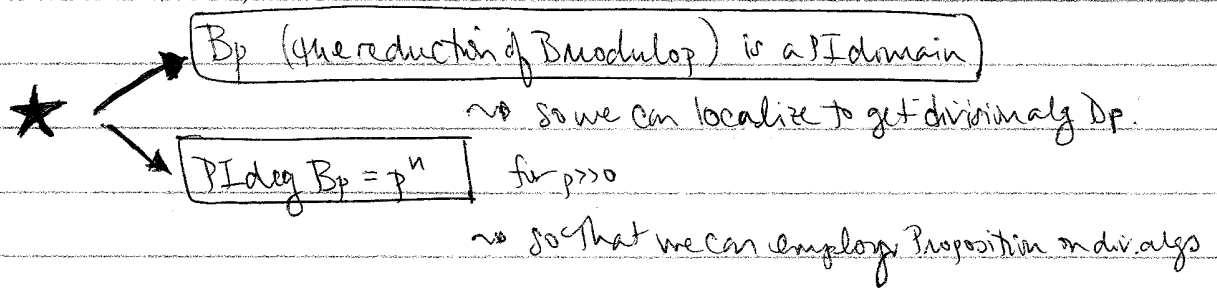 Bp (the reduction of B modulo p) is a PI domain
⇝ so we can localize to get division alg Dp.
★
PI deg Bp = pⁿ for p>>0
⇝ so that we can employ Proposition on div. algs